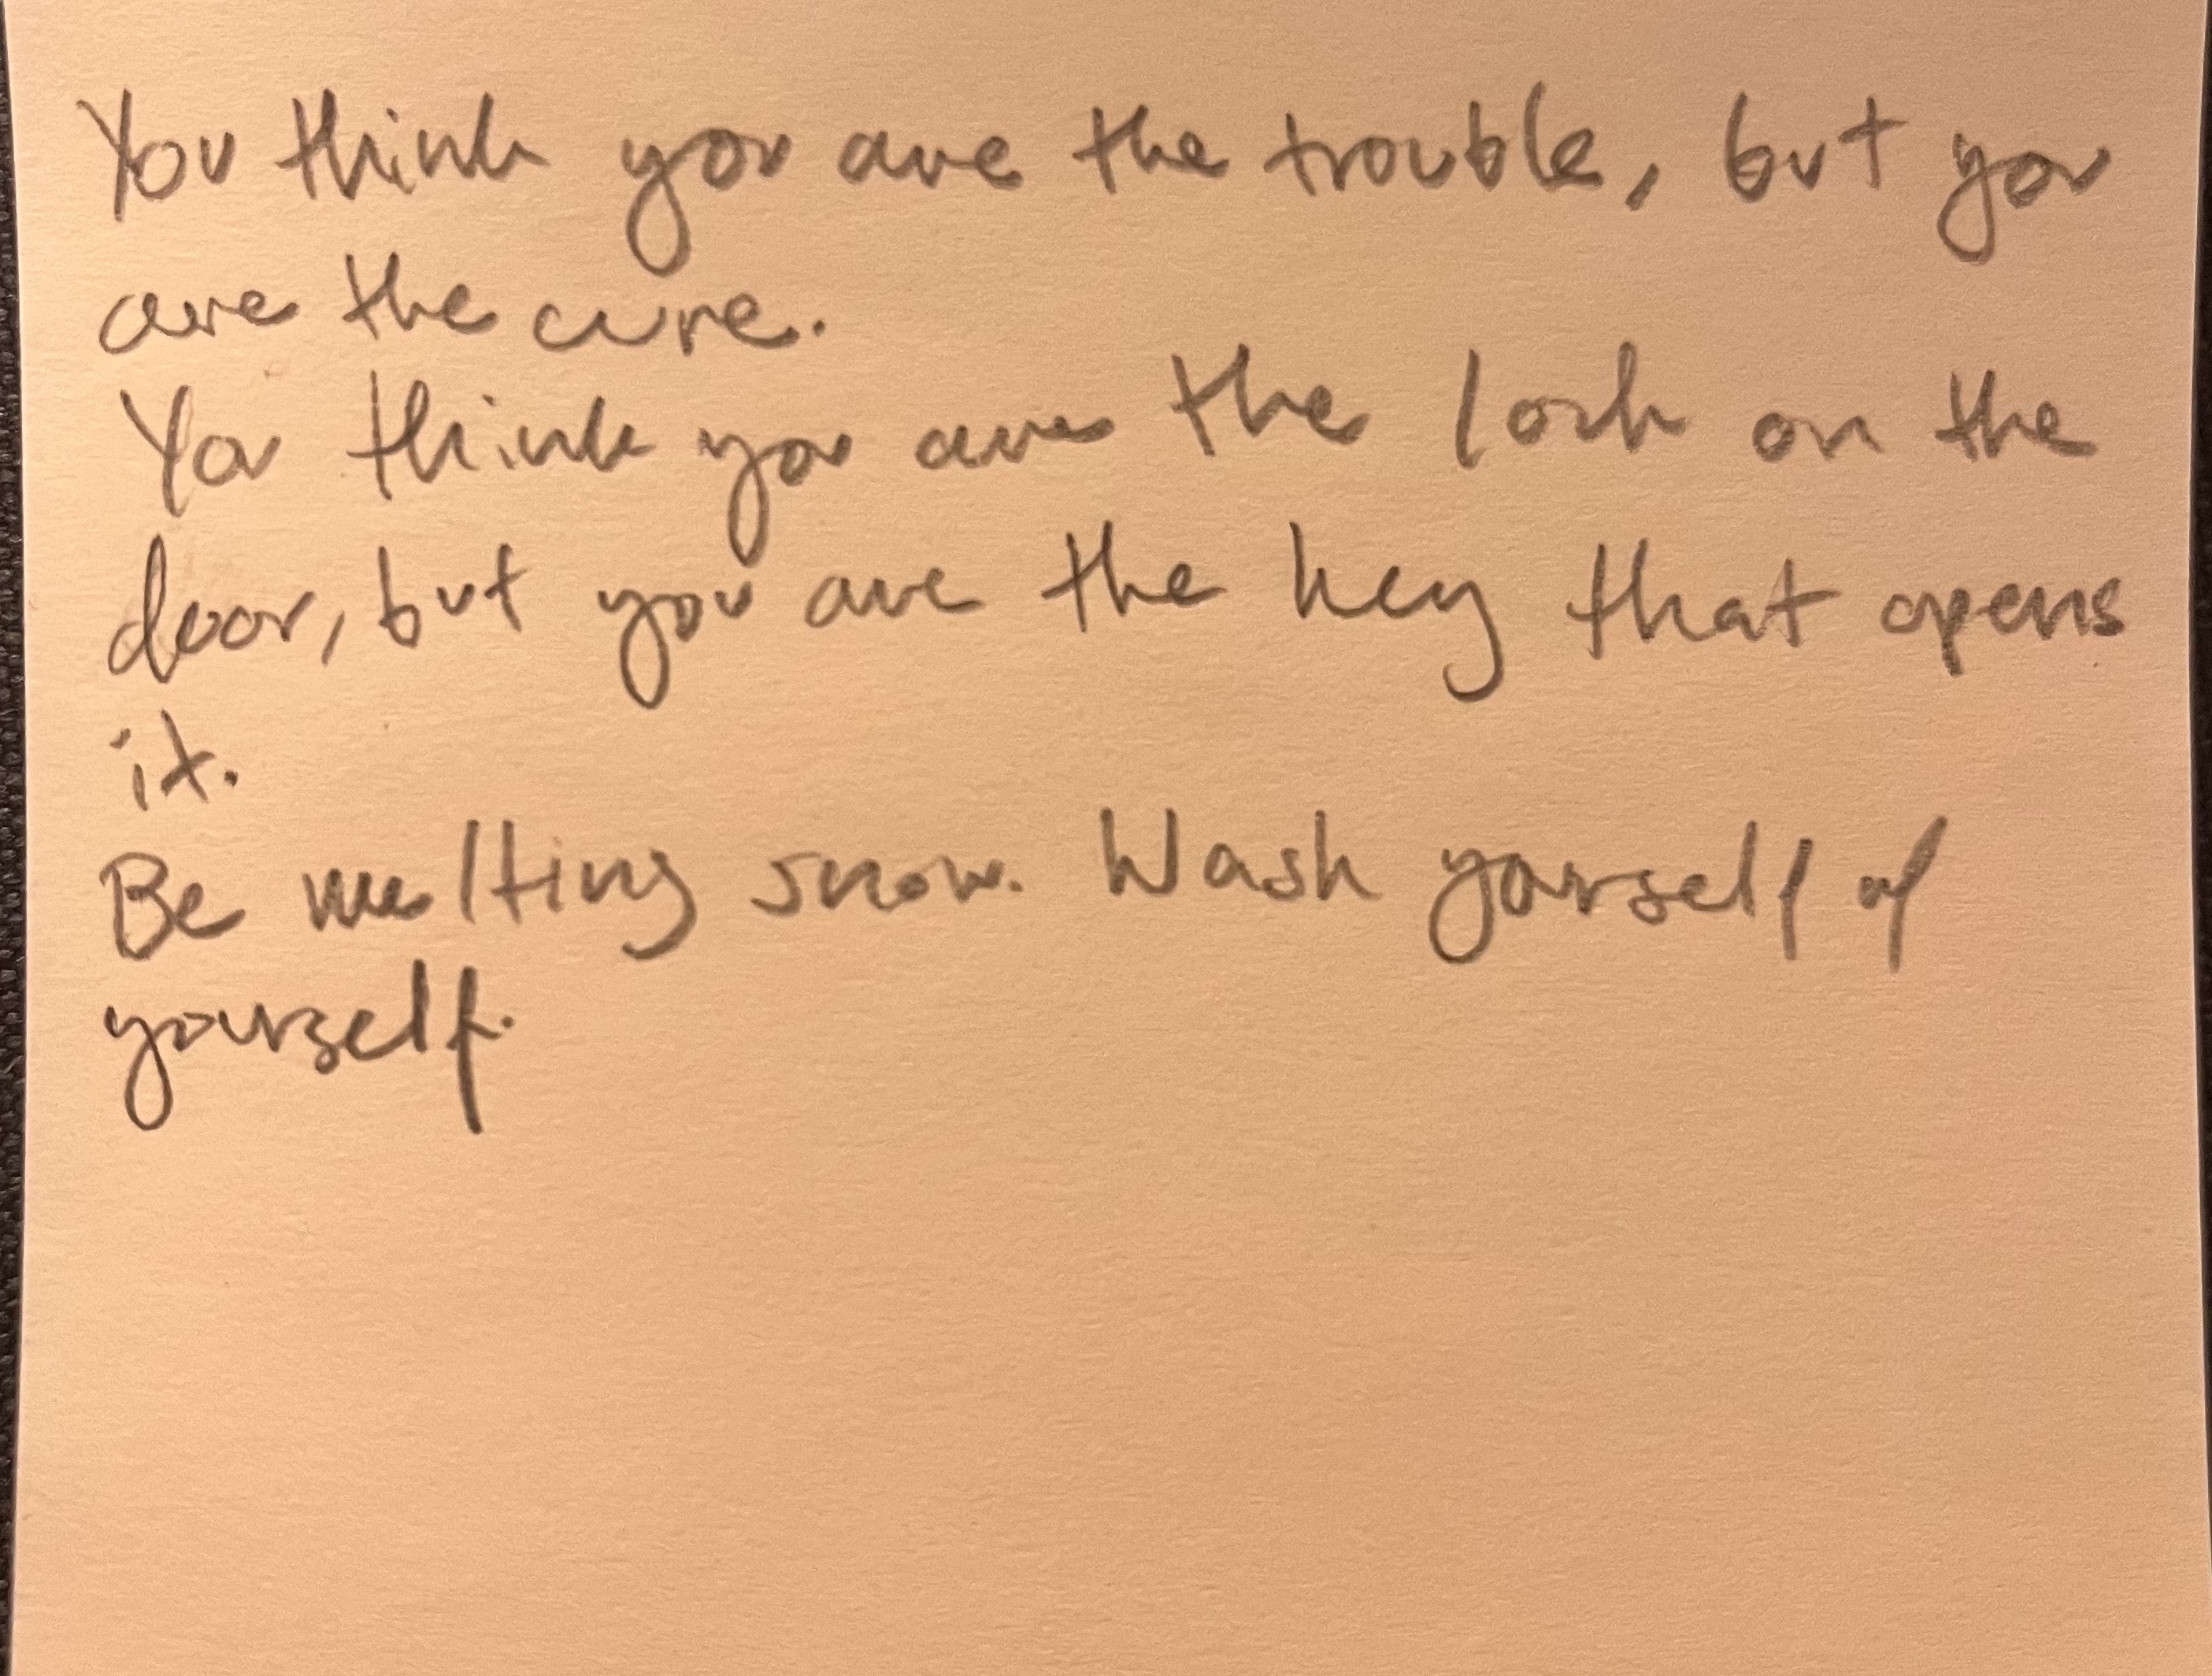 You think you are the trouble, but you
are the cure.
You think you are the lock on the
door, but you are the key that opens
it.
Be melting snow. Wash yourself of
yourself.